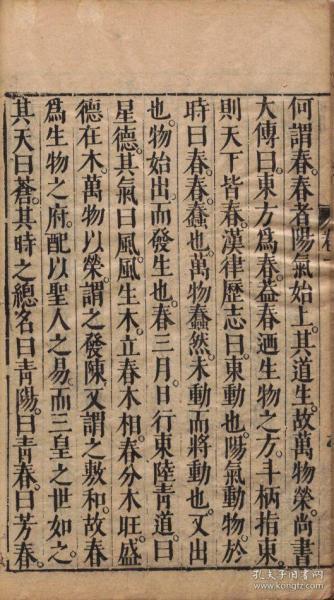 何謂春。春者陽氣始上。其道生。故萬物榮。尚書
大傳曰。東方為春。葢春迺生物之方。斗柄指東。
則天下皆春。漢律歷志曰。東動也。陽氣動物。於
時曰春。春蠢也。萬物蠢然。未動而將動也。又出
也。物始出而發生也。春三月。日行東陸靑道。曰
星德。其氣曰風。風生木。立春木相。春分木旺。盛
德在木。萬物以榮。謂之發陳。又謂之敷和。故春
為生物之府。配以聖人之易。而三皇之世如之。
其天曰蒼。其時之總名曰靑陽。曰靑春。曰芳春。
孔夫子旧书网